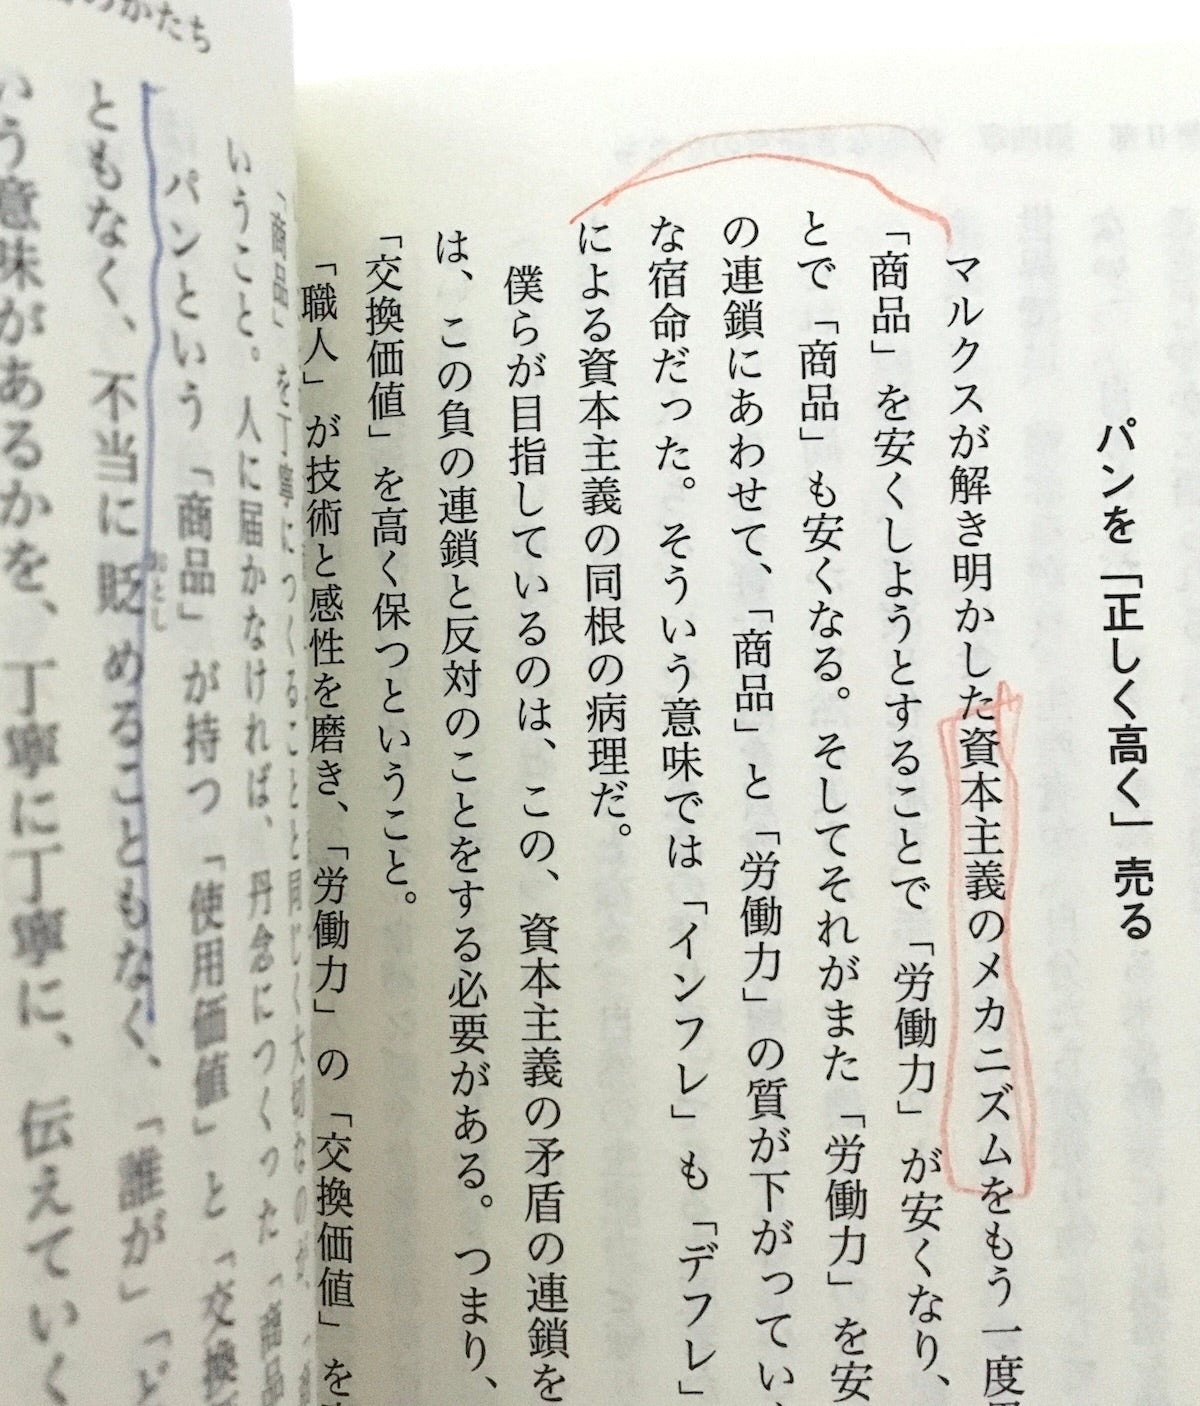 パンを「正しく高く」売る
マルクスが解き明かした資本主義のメカニズムをもう一度
「商品」を安くしようとすることで「労働力」が安くなり、
とで「商品」も安くなる。そしてそれがまた「労働力」を安
の連鎖にあわせて、「商品」と「労働力」の質が下がってい
な宿命だった。そういう意味では「インフレ」も「デフレ」
による資本主義の同根の病理だ。
僕らが目指しているのは、この、資本主義の矛盾の連鎖を
は、この負の連鎖と反対のことをする必要がある。つまり、
「交換価値」を高く保つということ。
「職人」が技術と感性を磨き、「労働力」の「交換価値」を
のかたち
「商品」を丁寧につくることと同じく大切なのは、
いうこと。人に届かなければ、丹念につくった「商品
パンという「商品」が持つ「使用価値」と「交換
ともなく、不当に貶めることもなく、「誰が」「ど
おとし
いう意味があるかを、丁寧に丁寧に、伝えていく